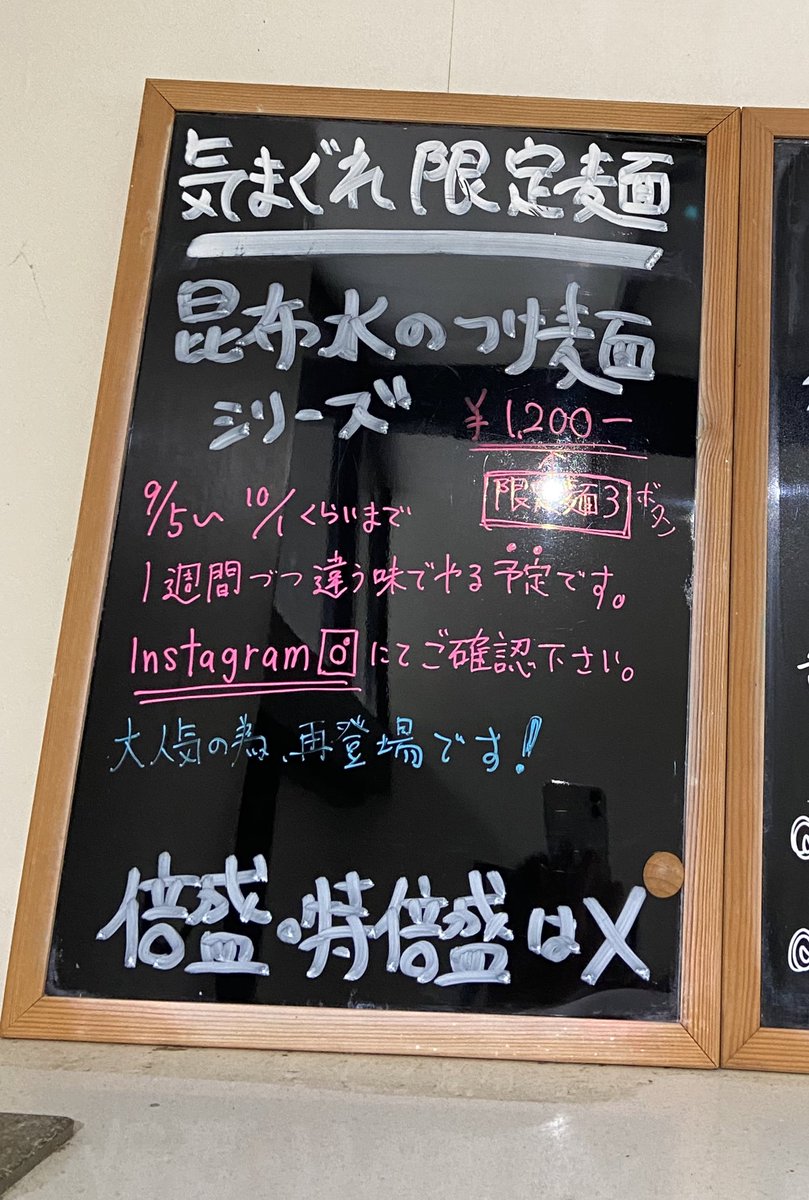 気まぐれ限定麺
昆布水のつけ麺
シリーズ
¥1,200ー
限定麺3 ボタン
9/5い 10/1くらいまで
1週間づつ違う味でやる予定です。
Instagram にてご確認下さい。
大人気の為、再登場です!
倍盛・特倍盛はX